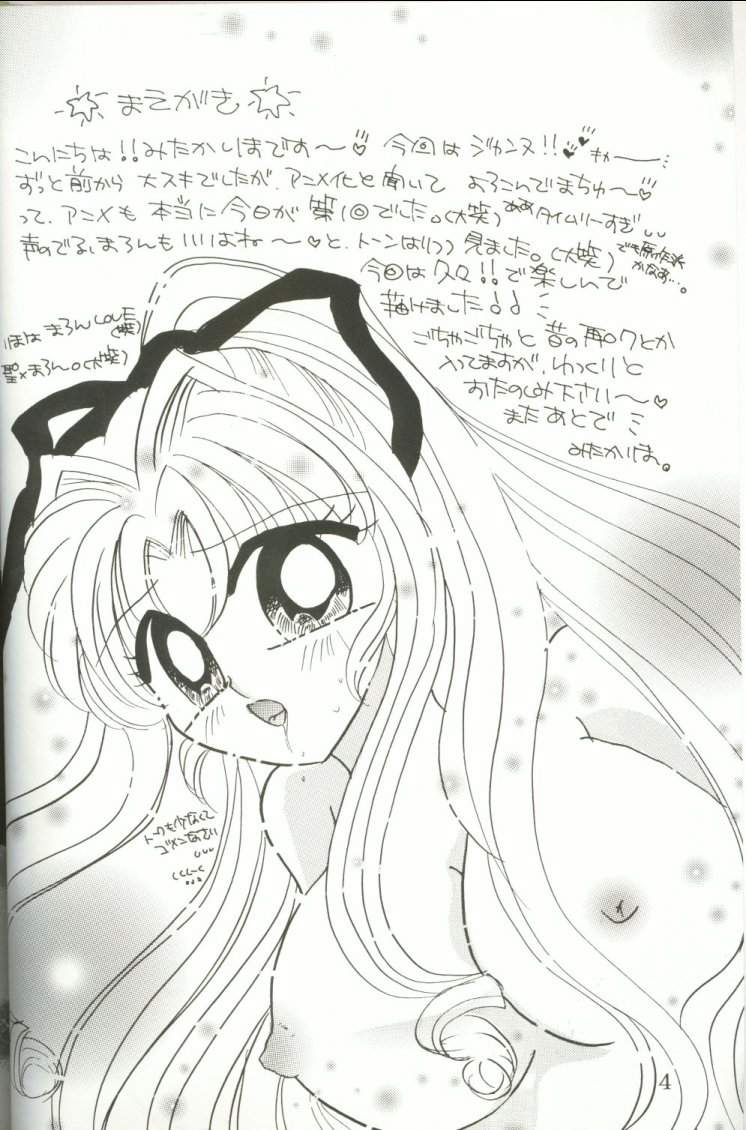 まえがき
こんにちは!!みたかしほです〜♡ 今回はジャンヌ!!♥♥ キャー——…
ずっと前から 大スキでしたが、アニメ化と聞いて よろこんでまちゅ〜♡
って、アニメも 本当に今日が 第1回でした。(大笑) ああタイムリーすぎ
声のでるまろんもいいはね〜♡と、トーンはりつつ見ました。(大笑) でも原作派かなぁ…。
今回は久々!!で楽しんで
描けました!!
ごちゃごちゃと 昔の再ロクとか
入ってますが、ゆっくりと
おたのしみ下さい〜♡
またあとで
みたかしほ。
しほは まろんLOVE(笑)
聖×まろん。(大笑)
トークも少なくて
ゴメンなさい
くくしーく…
4